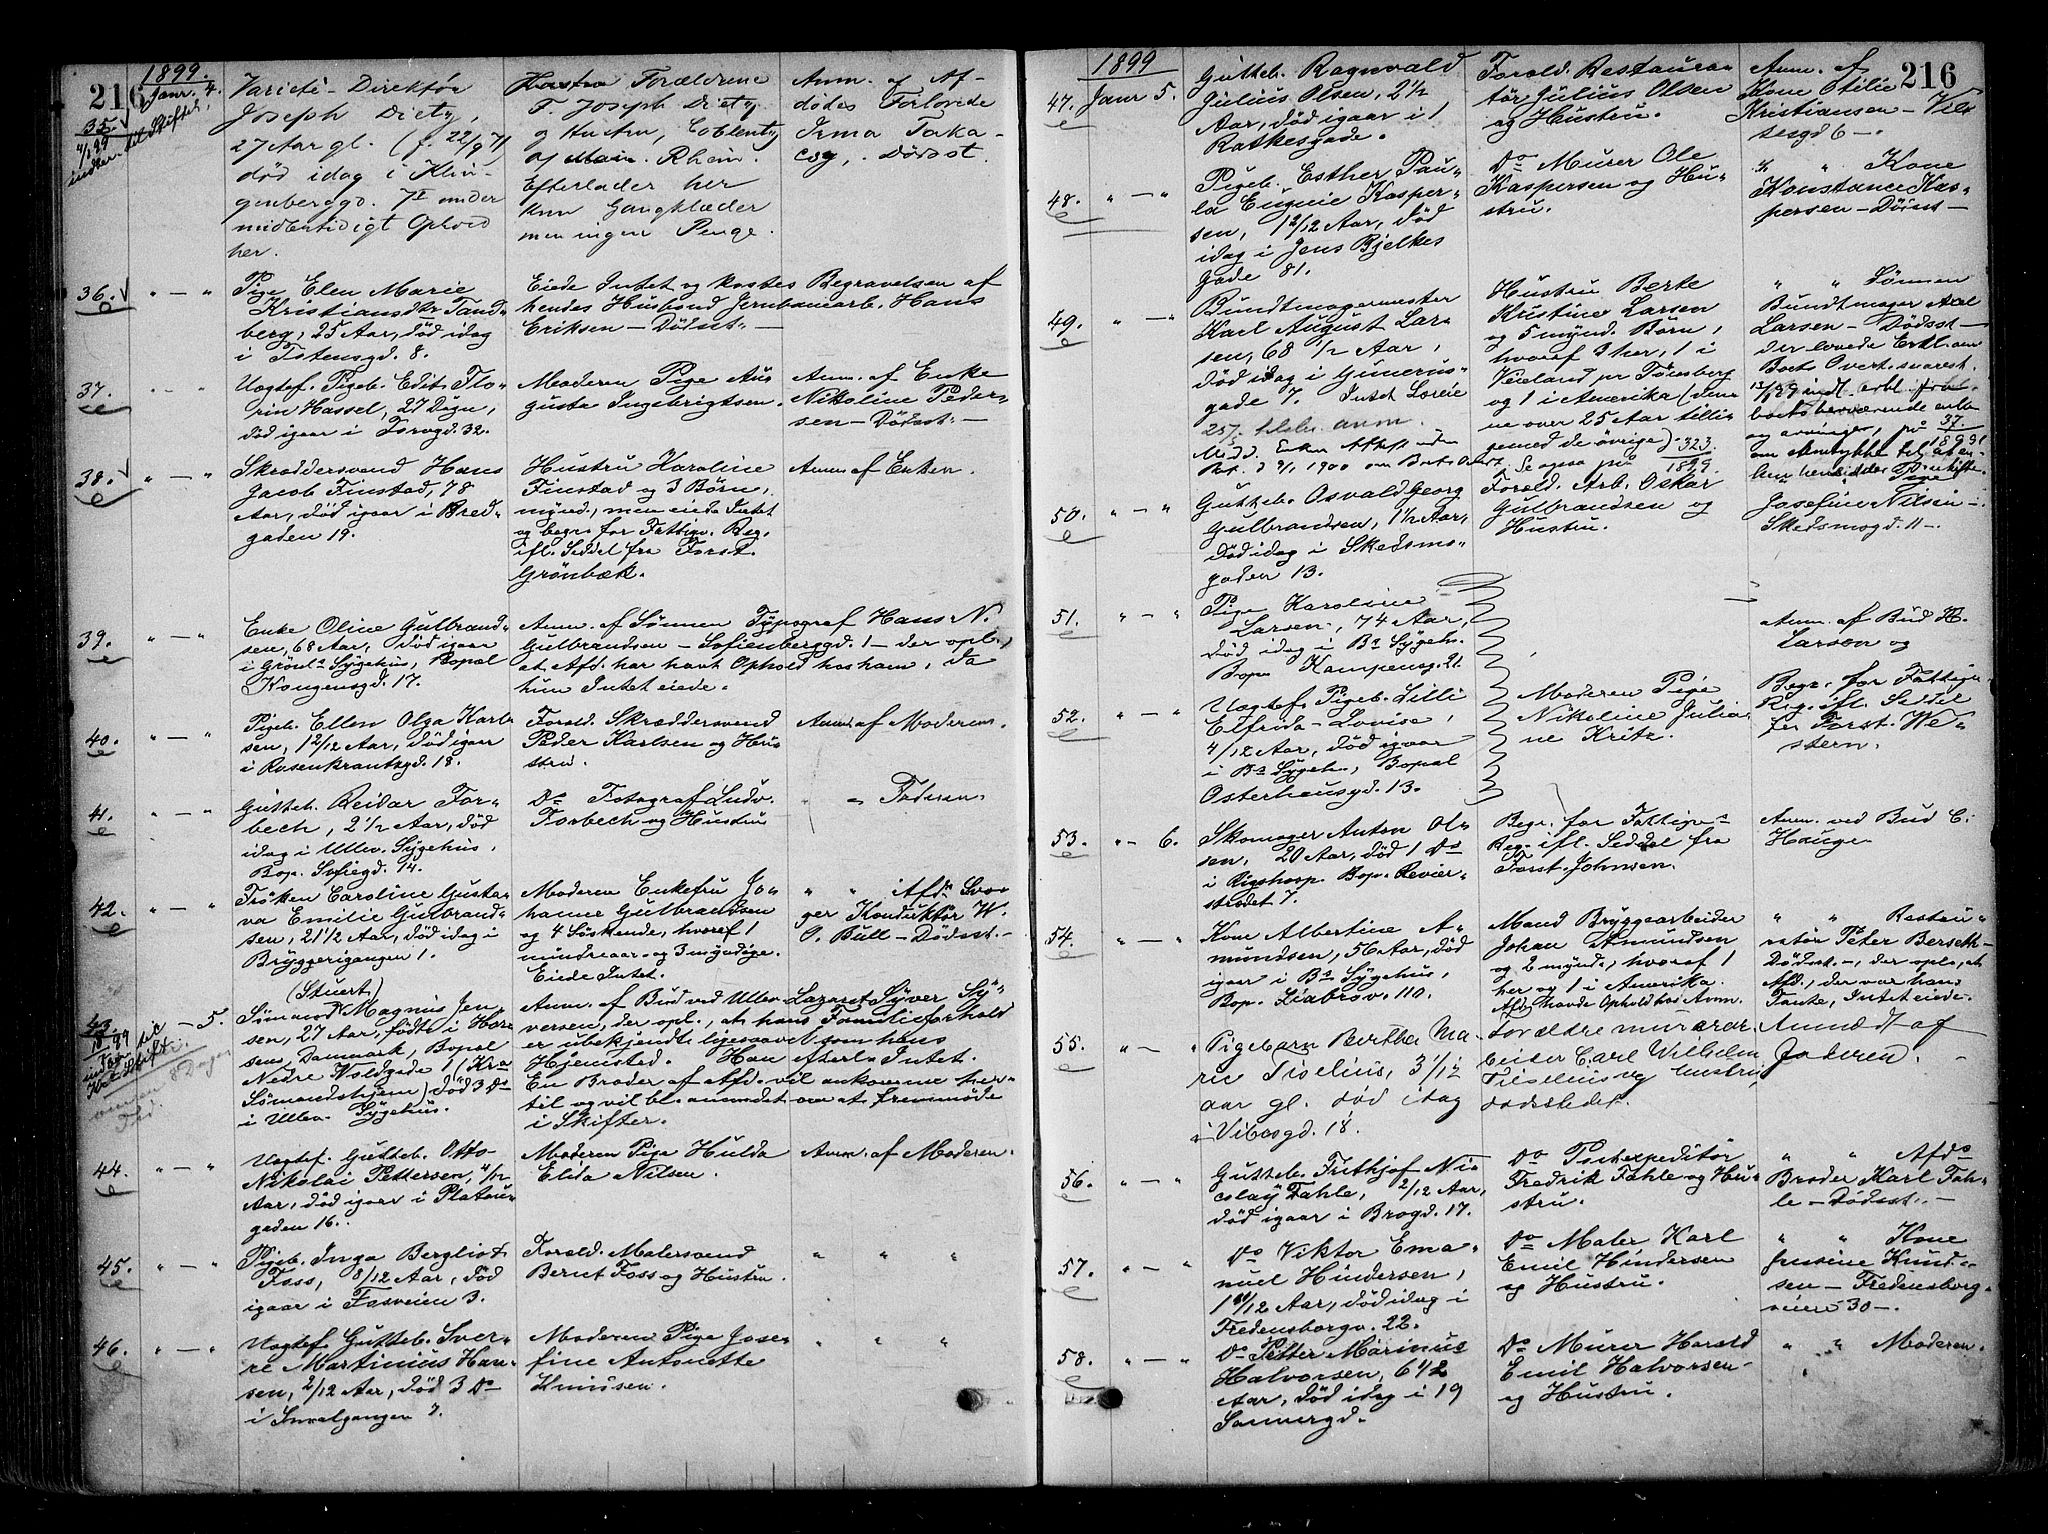 216
1899.
Janr. 4.
35
4/1 99
indker. til Skifter.
Varieté-Direktør
Joseph Dietz,
27 Aar gl. (f. 22/9 71)
død idag i Klin-
genberggd. 7 II under
midlertidigt Ophold
her.
Forældrene
F. Joseph Dietz
og Hustru, Coblentz
Rhein.
Efterlader her
kun Gangklæder
men ingen Penge.
Anm. af Af-
dødes Forlovede
Irma Taka-
csy, Dødsst.
36. " — "
Pige Elen Marie
Kristiansdtr Tand-
berg, 25 Aar, død idag
i Totensgd. 8.
Eiede Intet og kostes Begravelsen af
hendes Husbond Jernbanearb. Hans
Eriksen — Dødsst. —
37. " — "
Uægtef. Pigeb. Edit Flo-
rin Hassel, 27 Døgn,
død igaar i Torvgd. 32.
Moderen Pige Au-
gusta Ingebrigtsen.
Anm. af Enke
Nikoline Peder-
sen — Dødsst. —
38. " — "
Skræddersvend Hans
Jacob Finstad, 78
Aar, død igaar i Bred-
gaden 19.
Hustru Karoline
Finstad og 3 Børn,
mynd., men eiede Intet
og begr. for Fattigv. Reg.
ifl. Seddel fra Forst.
Grønbæk.
Anm. af Enken.
39. " — "
Enke Oline Gulbrand-
sen, 68 Aar, død igaar
i Grønl.s Sygehus, Bopæl
Kongensgd. 17.
Anm. af Sønnen Typograf Hans N.
Gulbrandsen — Sofienberggd. 1 — der opl.,
at Afd. har havt Ophold hos ham, da
hun Intet eiede.
40. " — "
Pigeb. Ellen Olga Karl-
sen, 1 2/12 Aar, død igaar
i Rosenkrantzgd. 18.
Foræld. Skræddersvend
Peder Karlsen og Hu-
stru.
Anm. af Moderen.
41. " — "
Gutteb. Reidar For-
bech, 2 1/2 Aar, død
idag i Ullev. Sygehus,
Bop. Sofiegd. 14.
Do Fotograf Ludv.
Forbech og Hustru
" " Faderen.
42. " — "
Frøken Caroline Gusta-
va Emilie Gulbrand-
sen, 21 1/2 Aar, død idag i
Bryggerigangen 1.
Moderen Enkefru Jo-
hanne Gulbrandsen
og 4 Søskende, hvoraf 1
mindreaar. og 3 myndige.
Eiede Intet.
" " Afdn Svo-
ger Konduktør W.
O. Bull — Dødsst. —
43 — 5.
(Stuert)
Sømand Magnus Jen-
sen, 27 Aar, født i Hor-
sens, Danmark, Bopæl
Nedre Voldgade 1 (Kra
Sømandshjem) død 3 Ds
i Ullev. Sygehus.
Anm. af Bud ved Ullev. Lazaret Syver Sy-
versen, der opl., at hans Familieforhold
er ubekjendt ligesaavel som hans
Hjemsted. Han efterl. Intet.
En Broder af Afd. vil ankomme her-
til og vil bl. anmodet om at fremmøde
i Skifter.
44. " — "
Uægtef. Gutteb. Otto
Nikolai Pettersen, 4/12
Aar, død igaar i Platou-
gaden 16.
Moderen Pige Hulda
Elida Nilsen.
Anm. af Moderen.
45. " — "
Pigeb. Inga Bergliot
Foss, 8/12 Aar, død
igaar i Fosveien 3.
Foræld. Malersvend
Bernt Foss og Hustru.
" " "
46. " — "
Uægtef Gutteb. Sver-
re Martinius Han-
sen, 2/12 Aar, død 3 Ds
i Smalgangen 7.
Moderen Pige Jose-
fine Antonette
Knudsen.
" " "
216
1899
47. Janr 5.
Gutteb. Ragnvald
Julius Olsen, 2 1/2
Aar, død igaar i 1
Ratkesgade.
Foræld. Restaura-
tør Julius Olsen
og Hustru.
Anm. af
Kone Otilie
Kristiansen — Vil-
sesgd 6 —.
48. " — "
Pigeb. Esther Pau-
la Eugenie Kasper-
sen, 1 2/12 Aar, død
idag i Jens Bjelkes
Gade 81.
Do Murer Ole
Kaspersen og Hu-
stru.
" " Kone
Konstance Kas-
persen — Dødsst —
49. " — "
Bundtmagermester
Karl August Lar-
sen, 68 1/2 Aar,
død idag i Gunerius-
gade 7.
Hustru Berte
Kristine Larsen
og 5 mynd. Børn,
hvoraf 3 her, 1 i
Veieland pr Tønsberg
og 1 i Amerika (denne
over 25 Aar tillige-
med de øvrige)
Se ogsaa pr 323
1899.
" " Sønnen
Bundtmager Axel
Larsen — Dødsst —
der lovede Erkl. om
37.
1899
50. " — "
Gutteb. Osvald Georg
Gulbrandsen, 1 1/2 Aar,
død idag i Skedsmo-
gaden 13.
Foræld. Arb. Oskar
Gulbrandsen og
Hustru.
Pige
Josefine Nilsen —
Skedsmogd. 11 —.
51. " — "
Pige Karoline
Larsen, 74 Aar,
død idag i Bs Sygeh.
Bop. Kampensg. 21.
Anm. af Bud H.
Larsen og
52. " — "
Uægtef. Pigeb. Lilli
Elfrida Lovise,
4/12 Aar, død igaar
i Bs Sygeh., Bopæl
Osterhausgd. 13.
Moderen Pige
Nikoline Julia-
ne Kritz.
Begr. for Fattigv.
Reg. ifl. Seddel
fra Forst. We-
stern.
53. " — 6.
Skomager Anton Ol-
sen, 20 Aar, død 1 Ds
i Rigshosp. Bop. Revier-
stredet 7.
Begr. for Fattigv.
Reg. ifl. Seddel fra
Forst. Johnsen.
Anm. ved Bud C.
Hauge
54. " — "
Kone Albertine A-
mundsen, 56 Aar, død
igaar i Bs Sygehus,
Bop. Liabrov. 110.
Mand Bryggearbeider
Johan Amundsen
og 2 mynd., hvoraf 1
her og 1 i Amerika.
Afd. havde Ophold hos Anm.
" " Restau-
ratør Peter Berseth —
Dødsst. —, der opl., at
Afd., der var hans
Tante, Intet eiede.
55. " — "
Pigebarn Bertha Ma-
rie Tiselius, 3 1/12
aar gl. død idag
i Vibesgd. 18.
Forældre murerar-
beider Carl Wilhelm
Tiselius og Hustru,
dødsstedet.
Anmeldt af
Faderen.
56. " — "
Gutteb. Frithjof Ni-
colay Fahle, 2/12 Aar,
død igaar i Brogd. 17.
Do Postexpeditør
Fredrik Fahle og Hu-
stru.
" " Afds
Broder Karl Fah-
le — Dødsst. —
57. " — "
Do Viktor Ema-
nuel Hindersen,
1 11/12 Aar, død idag i
Fredensborgv. 22.
Do Maler Karl
Emil Hindersen
og Hustru.
" " Kone
Gusine Knud-
sen — Fredensborg-
veien 30 —.
58. " — "
Do Petter Marinus
Halvorsen, 6 1/2
Aar, død idag i 19
Sannergd.
Do Murer Harald
Emil Halvorsen
og Hustru.
" " Moderen.